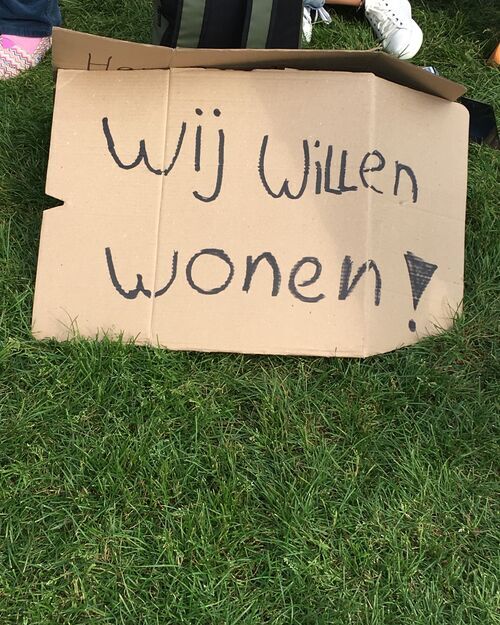 Wij Willen
wonen!